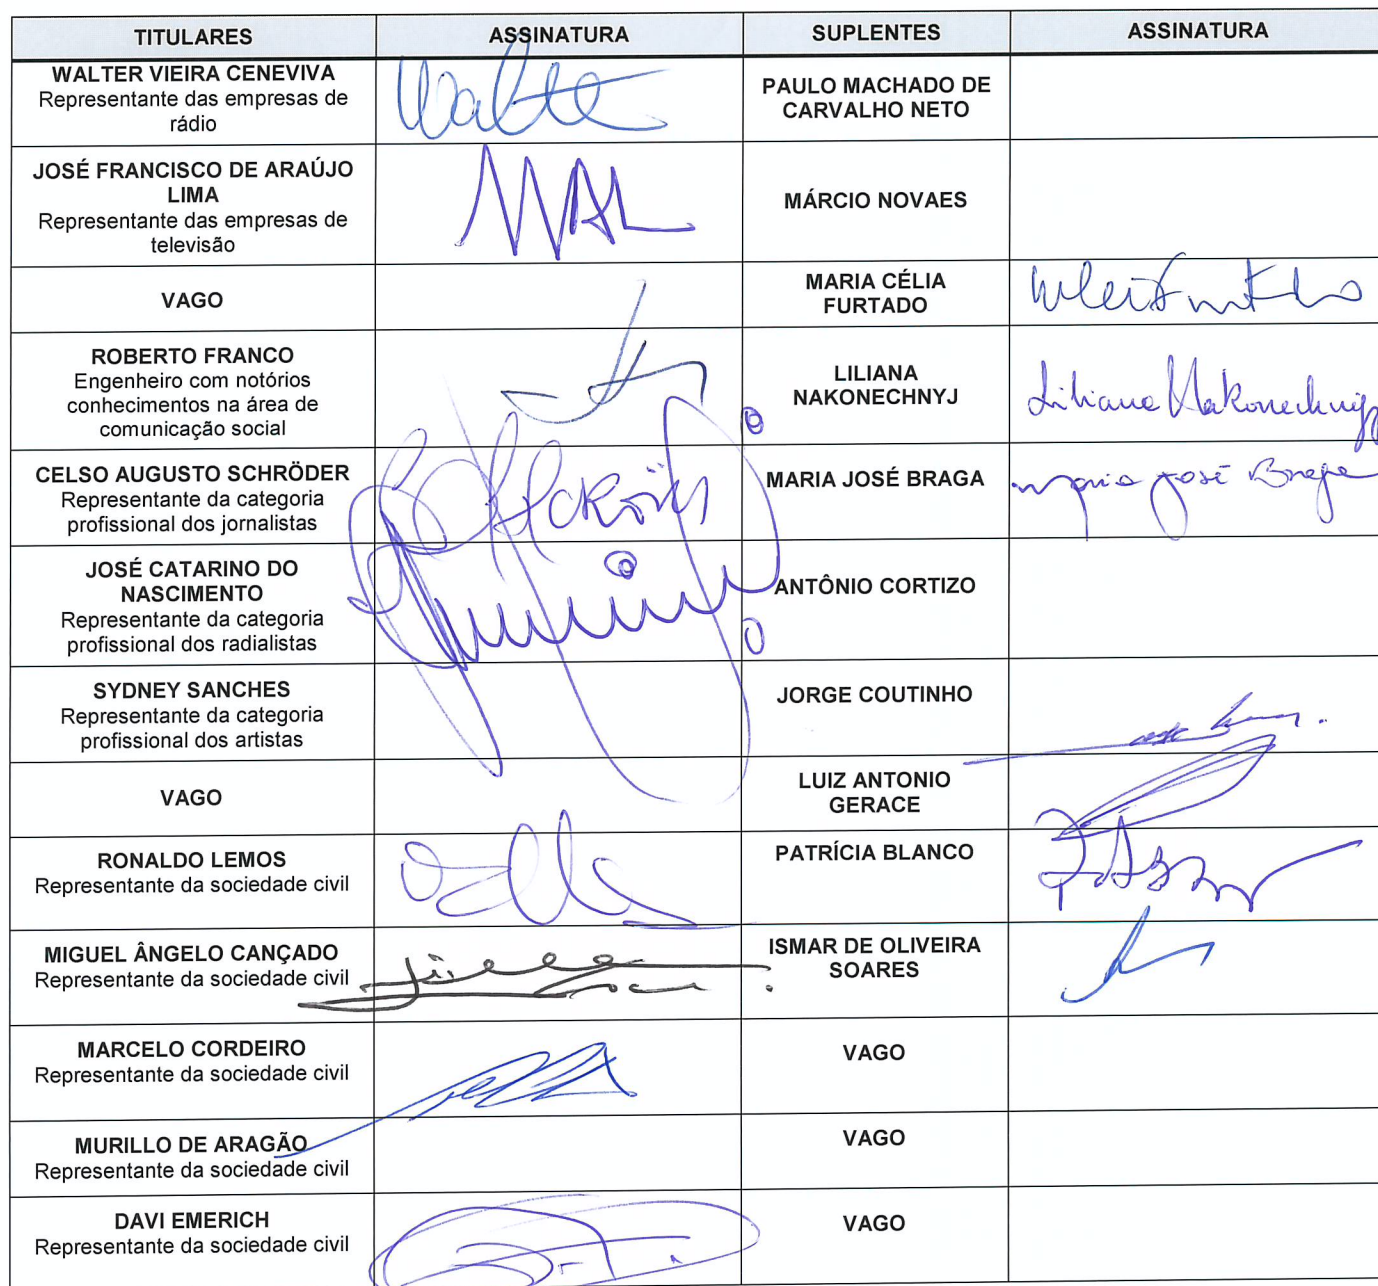 TITULARES ASSINATURA SUPLENTES ASSINATURA
WALTER VIEIRA CENEVIVA
Representante das empresas de
rádio
Walte
PAULO MACHADO DE
CARVALHO NETO
JOSÉ FRANCISCO DE ARAÚJO
LIMA
Representante das empresas de
televisão
MÁRCIO NOVAES
VAGO
MARIA CÉLIA
FURTADO
ROBERTO FRANCO
Engenheiro com notórios
conhecimentos na área de
comunicação social
LILIANA
NAKONECHNYJ
Liliana Nakonechnyj
CELSO AUGUSTO SCHRÖDER
Representante da categoria
profissional dos jornalistas
MARIA JOSÉ BRAGA
Maria José Braga
JOSÉ CATARINO DO
NASCIMENTO
Representante da categoria
profissional dos radialistas
ANTÔNIO CORTIZO
SYDNEY SANCHES
Representante da categoria
profissional dos artistas
JORGE COUTINHO
VAGO
LUIZ ANTONIO
GERACE
RONALDO LEMOS
Representante da sociedade civil
PATRÍCIA BLANCO
MIGUEL ÂNGELO CANÇADO
Representante da sociedade civil
ISMAR DE OLIVEIRA
SOARES
MARCELO CORDEIRO
Representante da sociedade civil
VAGO
MURILLO DE ARAGÃO
Representante da sociedade civil
VAGO
DAVI EMERICH
Representante da sociedade civil
VAGO